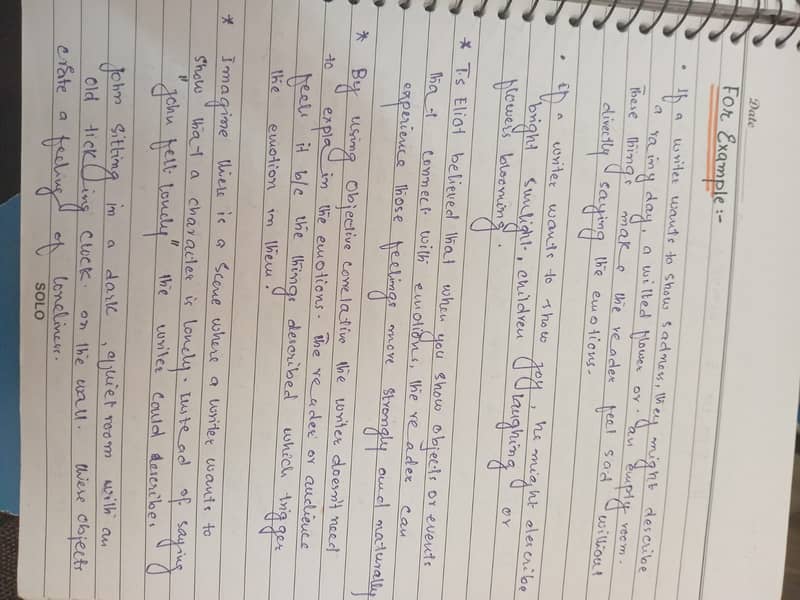 Date
For Example:-
• If a writer wants to show sadness, they might describe
a rainy day, a wilted flower or. an empty room.
These things make the reader feel sad without
directly saying the emotions.
• if a writer wants to show joy, he might describe
bright sunlight, children laughing or
flowers blooming.
* T.s Eliot believed that when you show objects or events
that connect with emotions, the reader can
experience those feelings more strongly and naturally
* By using objective correlative the writer doesn't need
to explain the emotions. The reader or audience
feels it b/c the things described which trigger
the emotion in them.
* Imagine there is a scene where a writer wants to
show that a character is lonely. instead of saying
"John felt lonely" the writer could describe.
John sitting in a dark, quiet room with an
old ticking clock. on the wall. These objects
create a feeling of loneliness.
SOLO